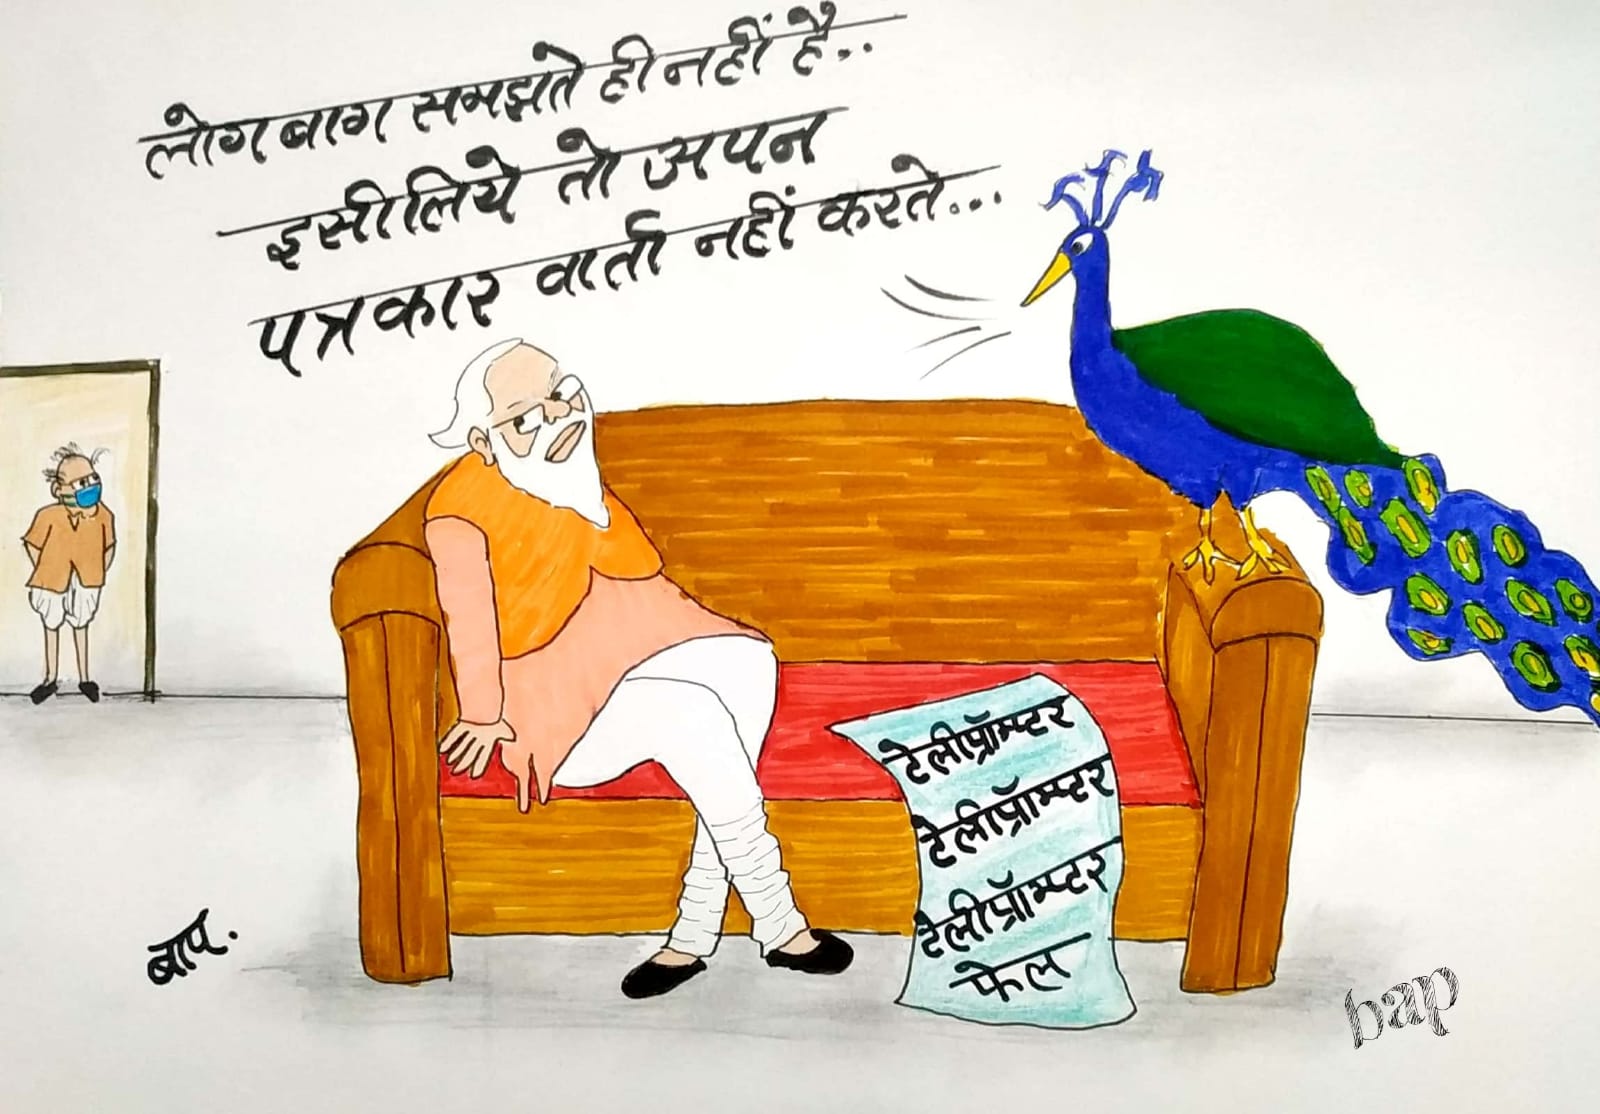 लोग बाग समझते ही नहीं है..
इसीलिये तो अपन
पत्रकार वार्ता नहीं करते...
टेलीप्रॉम्प्टर
टेलीप्रॉम्प्टर
टेलीप्रॉम्प्टर
फेल
बाप.
bap